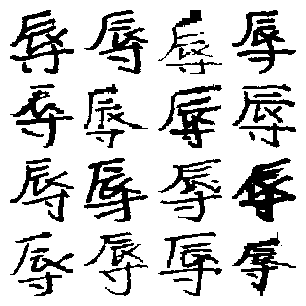 辱辱辱辱
辱辱辱辱
辱辱辱辱
辱辱辱辱